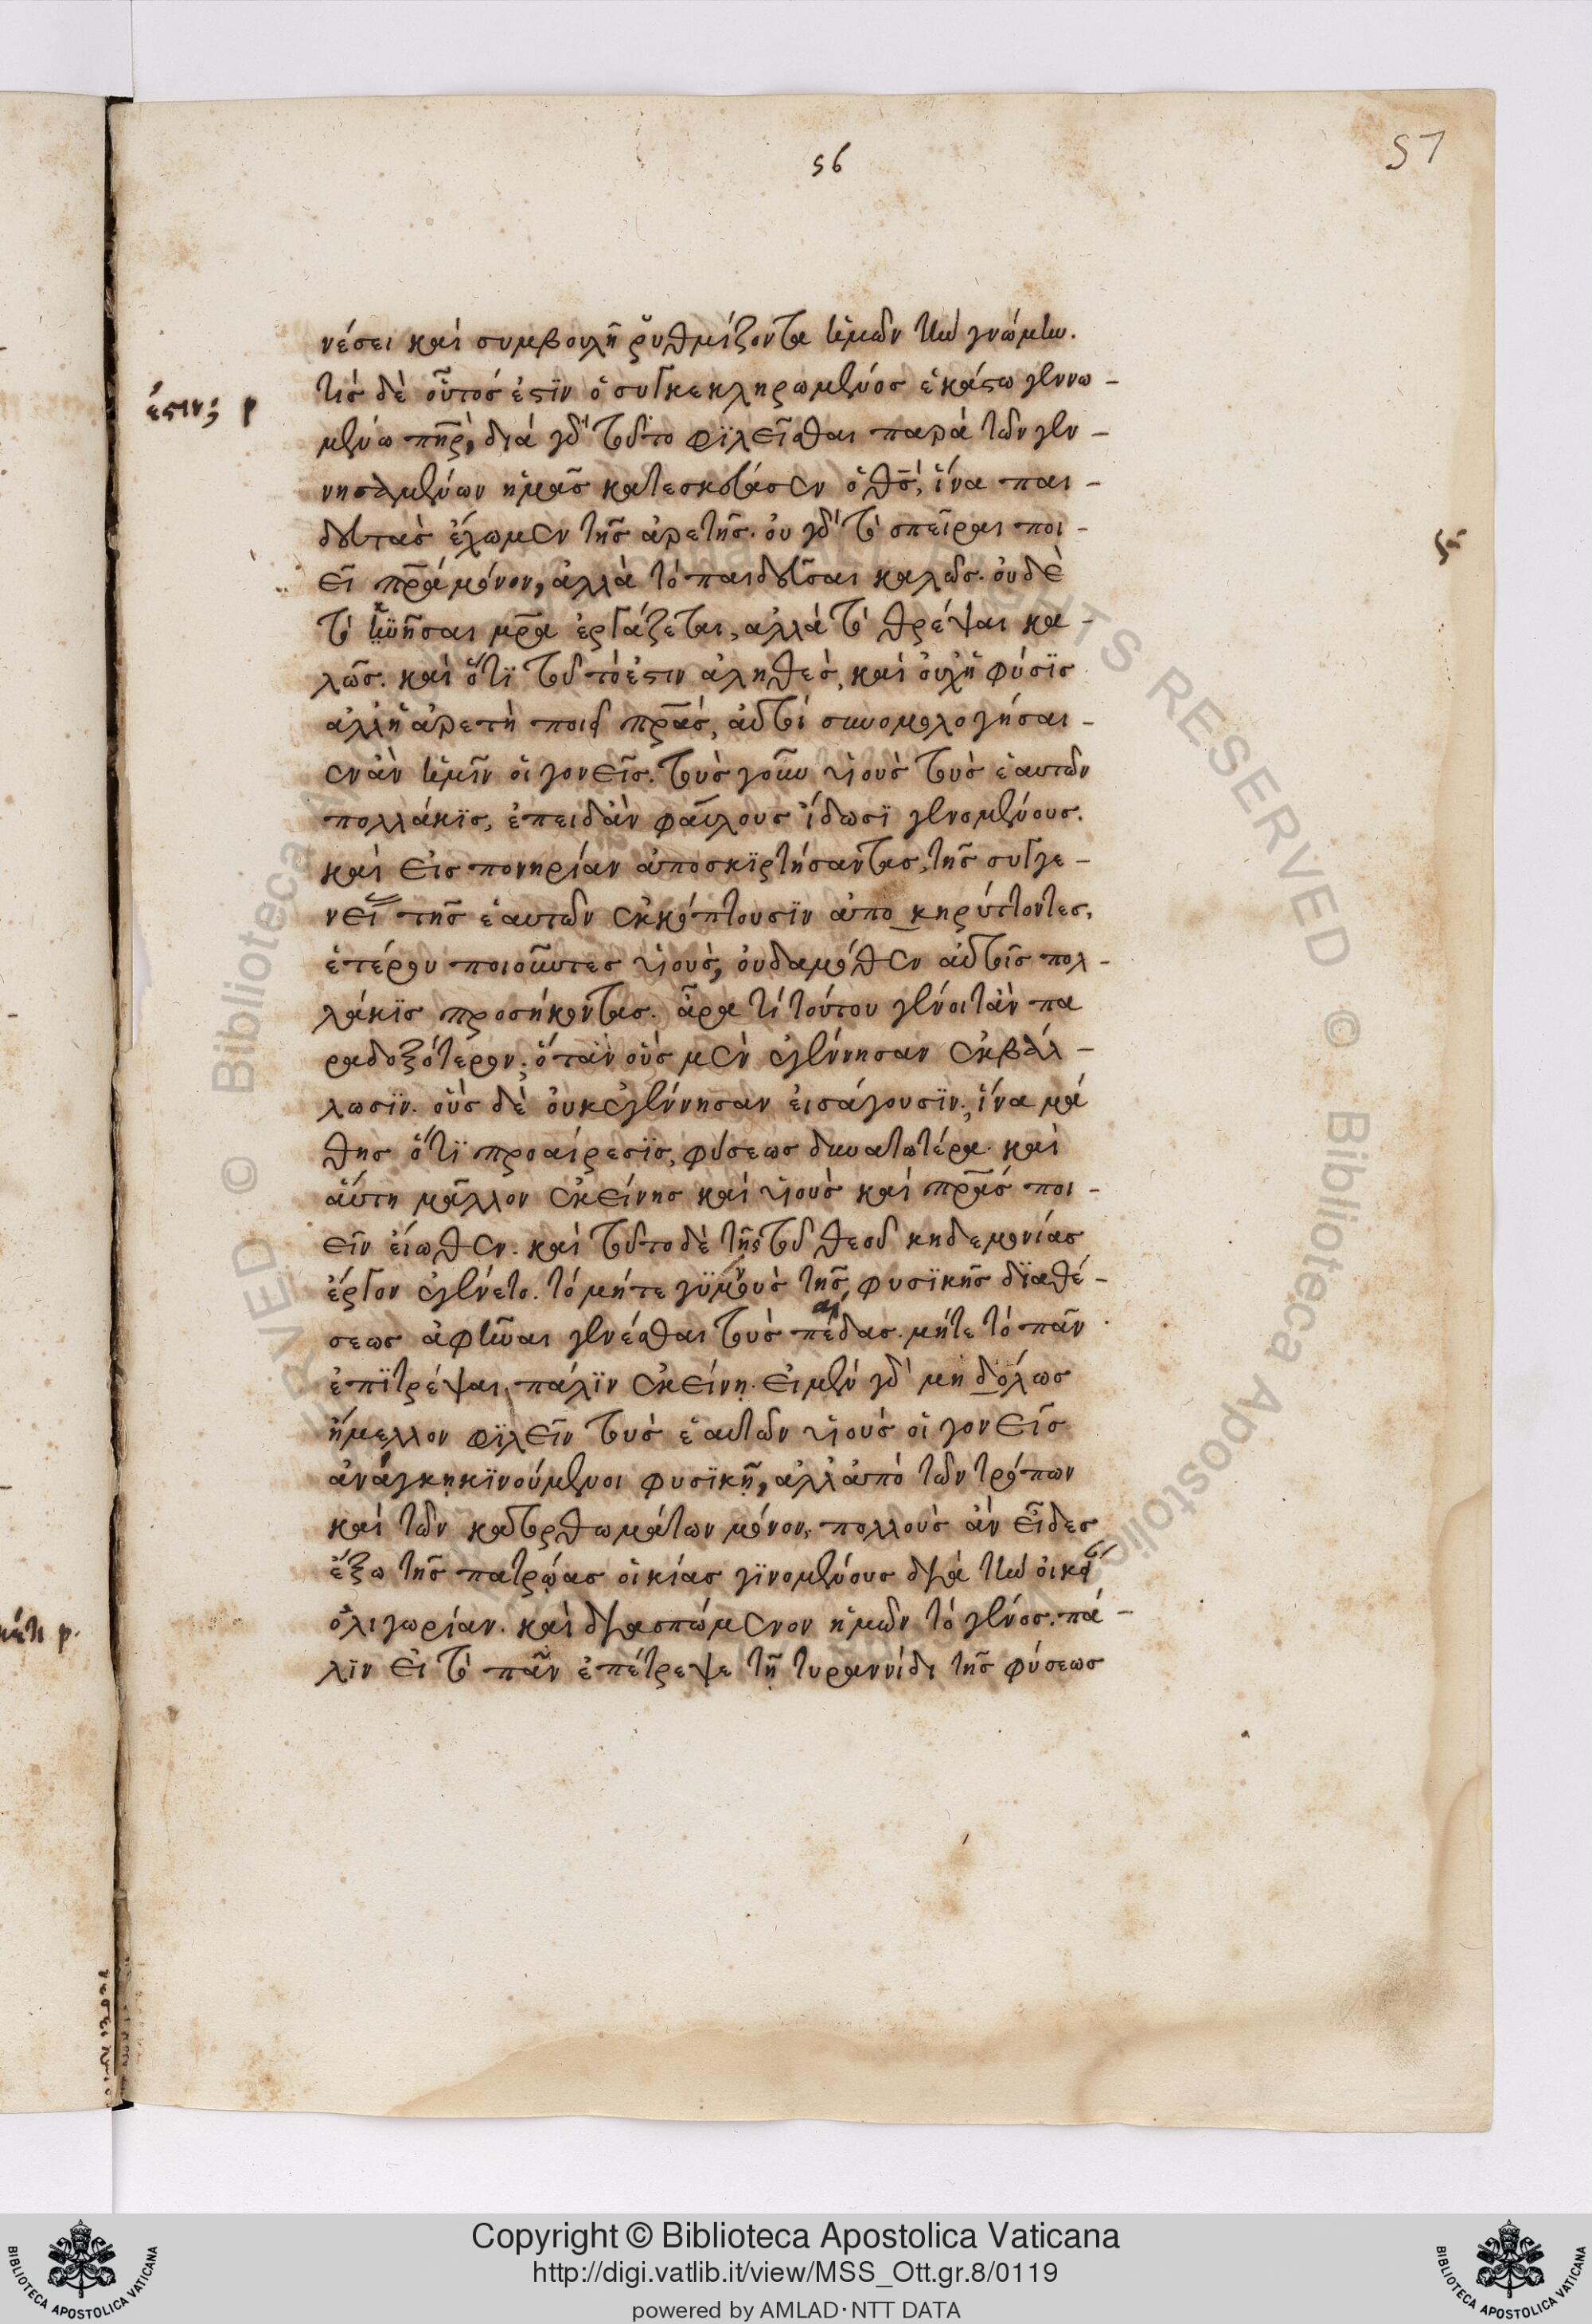 56
57
νέσει καὶ συμβουλῆ ῥυθμίζοντα ἡμῶν τὴν γνώμην.
τίς δὲ οὗτός ἐστιν ὁ συγκεκληρωμένος ἑκάστω γεννω-
ἐστιν; ρ
μένω πῆρ, διὰ γὰρ τοῦτο φιλεῖσθαι παρὰ τῶν γεν-
νησαμένων ἡμᾶς κατεσκεύασεν ὁ θς, ἵνα παι-
δευτὰς ἔχωμεν τῆς ἀρετῆς. οὐ γὰρ τὸ σπεῖραι ποι-
εῖ πρᾶ μόνον, ἀλλὰ τὸ παιδεῦσαι καλῶς. οὐδὲ
τὸ κϋῆσαι μρᾶ ἐργάζεται, ἀλλὰ τὸ θρέψαι κα-
λῶς. καὶ ὅτι τοῦτό ἐστιν ἀληθὲς, καὶ οὐχ ἡ φύσις
ἀλλ' ἡ ἀρετὴ ποιεῖ πρᾶς, αὐτοὶ συνομολογήσαι-
εν ἂν ἡμῖν οἱ γονεῖς. τοὺς γοῦν υἱοὺς τοὺς ἑαυτῶν
πολλάκις, ἐπειδὰν φαύλους ἴδωσι γενομένους.
καὶ εἰς πονηρίαν ἀποσκιρτήσαντας, τῆς συγγε-
νείας τῆς ἑαυτῶν ἐκκόπτουσιν ἀποκηρύττοντες,
ἑτέρου ποιοῦντες υἱοὺς, οὐδαμόθεν αὐτοῖς πολ-
λάκις προσήκοντας. ἆρα τί τούτου γένοιτ' ἂν πα
ραδοξότερον; ὅταν οὓς μὲν ἐγέννησαν ἐκβάλ-
λωσιν. οὓς δὲ οὐκ ἐγέννησαν εἰσάγουσιν; ἵνα μά
θης ὅτι προαίρεσις, φύσεως δυνατωτέρα. καὶ
αὕτη μᾶλλον ἐκείνης καὶ υἱοὺς καὶ πρᾶς ποι-
εῖν εἴωθεν. καὶ τοῦτο δὲ τῆς τοῦ θεοῦ κηδεμονίας
ἔργον ἐγένετο. τὸ μήτε γυμνοὺς τῆς φυσικῆς διαθέ-
σεως ἀφεῖναι γενέσθαι τοὺς παῖδας. μήτε τὸ πᾶν
ἐπιτρέψαι πάλιν ἐκείνη. εἰ μὲν γὰρ μὴ δ' ὅλως
ἤμελλον φιλεῖν τοὺς ἑαυτῶν υἱοὺς οἱ γονεῖς
ἀνάγκη κινούμενοι φυσικῆ, ἀλλ' ἀπὸ τῶν τρόπων
καὶ τῶν κατορθωμάτων μόνον, πολλοὺς ἂν εἶδες
ἔξω τῆς πατρώας οἰκίας γινομένους διὰ τὴν οἰκείαν
ὀλιγωρίαν. καὶ διασπώμενον ἡμῶν τὸ γένος. πά-
λιν εἰ τὸ πᾶν ἐπέτρεψε τῆ τυραννίδι τῆς φύσεως
Copyright © Biblioteca Apostolica Vaticana
http://digi.vatlib.it/view/MSS_Ott.gr.8/0119
powered by AMLAD·NTT DATA
BIBLIOTECA APOSTOLICA VATICANA
BIBLIOTECA APOSTOLICA VATICANA